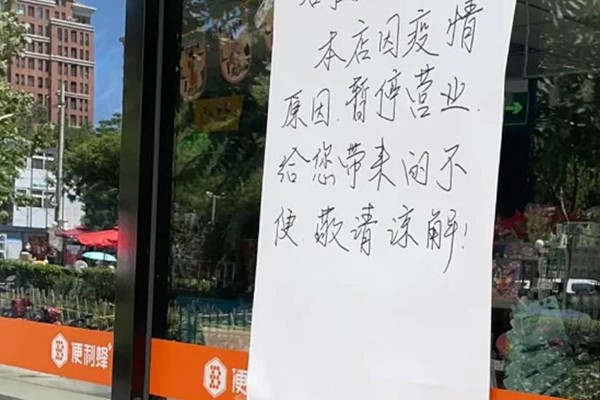 本店因疫情
原因.暂停营业.
给您带来的不
便.敬请凉解!
便利蜂
便